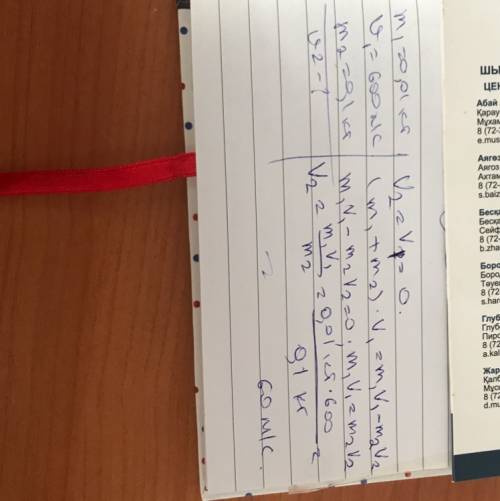 m₁=0,01кг
υ₁=600м/с
m₂=0,1кг
υ₂-?
V₂=V₁=0.
(m₁+m₂)·V₁=m₁V₁-m₂V₂
m₁V₁-m₂V₂=0·m₁V₁=m₂V₂
V₂=m₁V₁/m₂=0,01кг·600/0,1кг=
=60м/с.
ШЫ
ЦЕН
Абай
Қарау
Мұхам
8 (72-
e.mus
Аягөз
Аягоз
Ахтам
8 (72-
s.baiz
Бесқа
Бесқа
Сейф
8 (72-
b.zha
Бород
Бород
Тәуе
8 (72-
s.har
Глуб
Глуб
Пиро
8 (72
a.kal
Жар
Қалб
Мұс
8 (72
d.mu